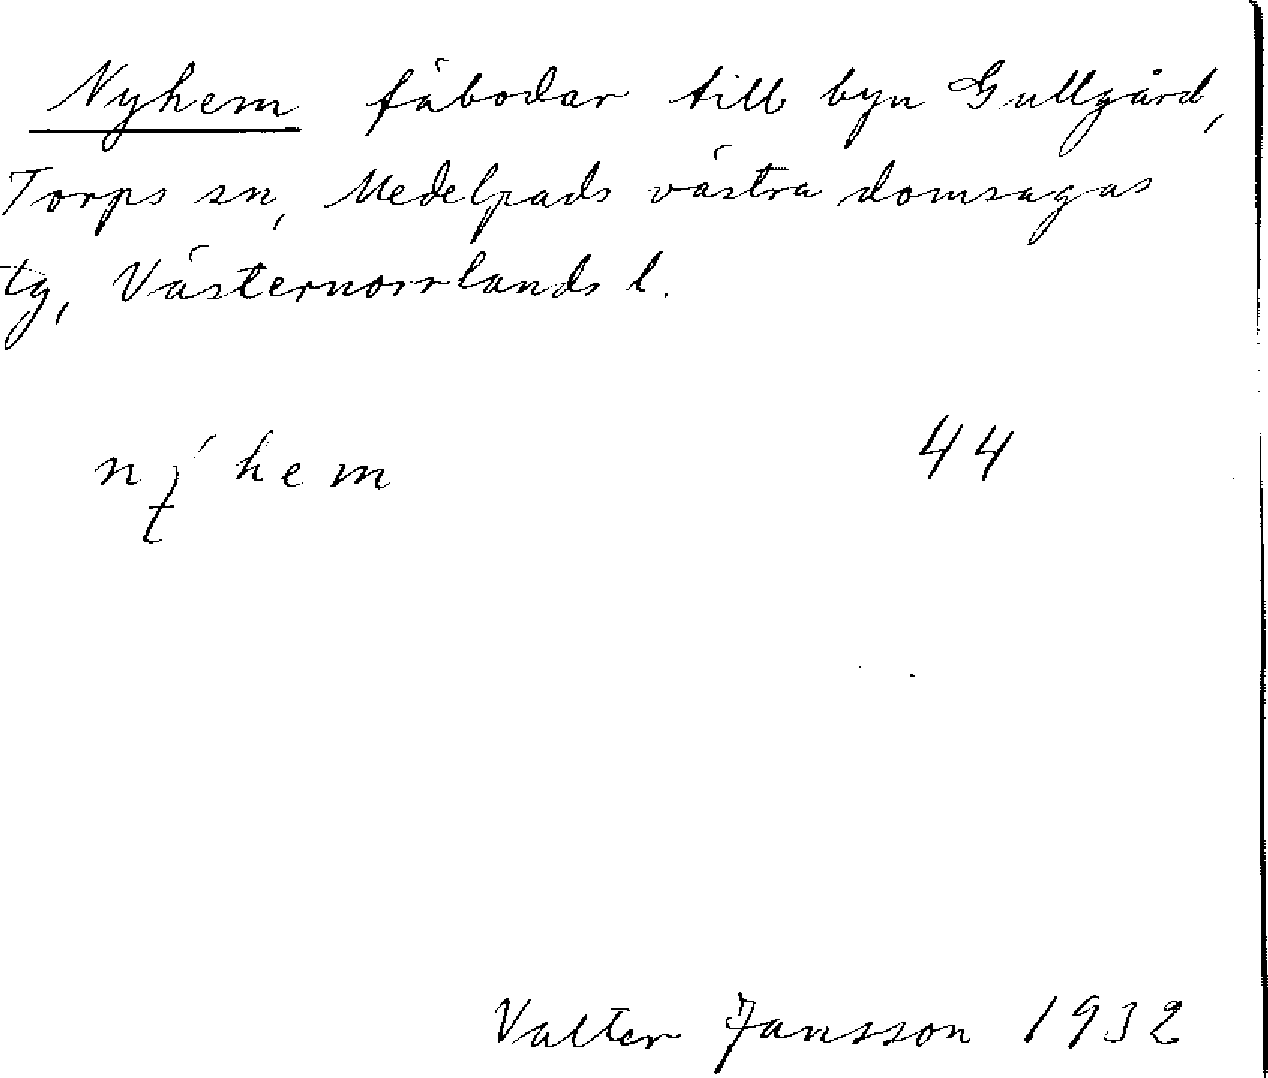 Nyhem fäbodar till byn Gullgård,
Torps sn, Medelpads västra domsagas
tg, Västernorrlands l.
44
Valter Jansson 1932